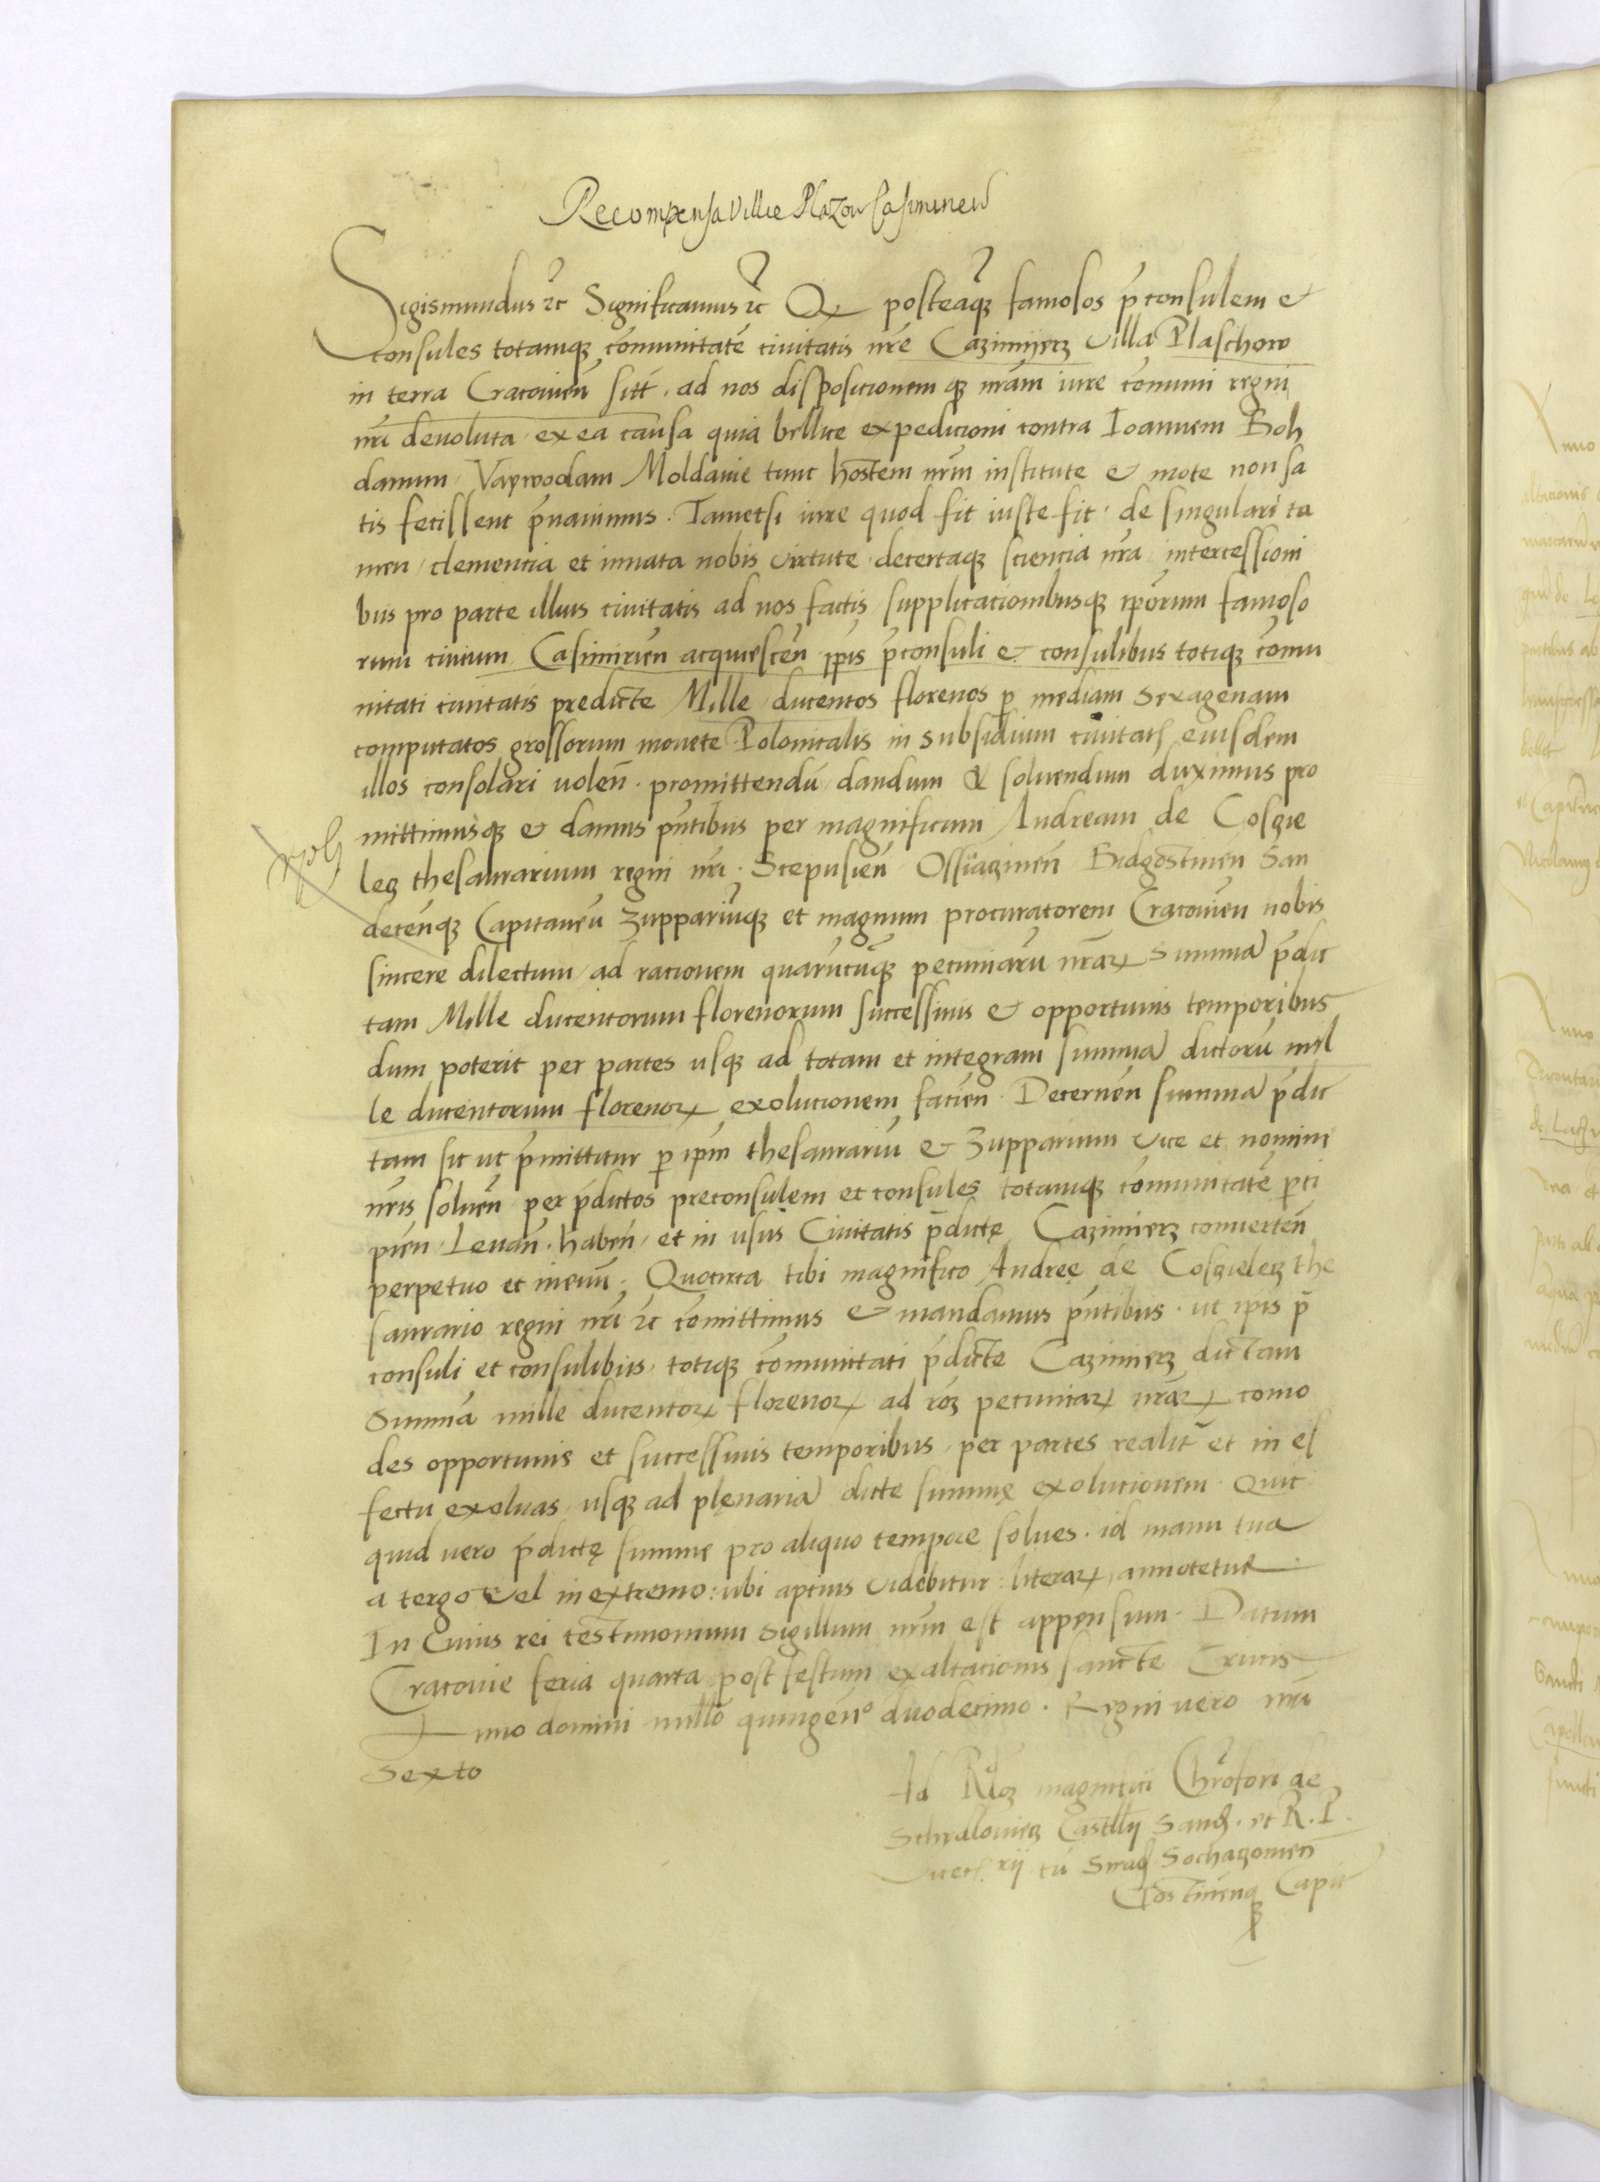 Recompensa ville Plazow Casimirien
Sigismundus ꝛc Significamus ꝛc Qꝫ posteaqꝫ famosos p̄consulem &
consules totamqꝫ com̄unitatē civitatis nr̄e Cazimijerz villa Plaschow
in terra Cracovien̄ sitt̄ . ad nos disposicionem qꝫ nr̄am iure com̄uni regni
nr̄i devoluta ex ea causa quia bellice expedicioni contra Ioannem Boh
danum Vaywodam Moldavie tunc hostem nr̄m institute & mote non sa
tis fecissent p̄vavimus . Tametsi iure quod fit iuste fit . de singulari ta
men clemencia et innata nobis virtute decertaqꝫ sciencia nr̄a intercessioni
bus pro parte illius civitatis ad nos factis supplicacionibusqꝫ ip̄orum famoso
rum civium Casimirien̄ acquiescen̄ ip̄is p̄consuli & consulibus totiqꝫ com̄u
nitati civitatis predicte Mille ducentos florenos ꝑ mediam sexagenam
computatos grossorum monete Polonicalis in subsidium civitatis eiusdem
illos consolari volen̄ . promittendū dandum & solvendum duximus pro
mittimusqꝫ & damus pn̄tibus per magnificum Andream de Cosczie
lecz thesaurarium regni nr̄i . Scepusien̄ Osswiaczimen̄ Bidgostien̄ San
decen̄qꝫ Capitaneū Zuppariūqꝫ et magnum procuratorem Cracovien̄ nobis
sincere dilectum ad racionem quarūcūqꝫ pecuniarū nr̄arꝝ summā p̄dic
tam Mille ducentorum florenorum successivis & opportunis temporibus
dum poterit per partes usqꝫ ad totam et integram summā dictorū mil
le ducentorum florenorꝝ exolucionem facien̄ . Decernen̄ summā p̄dic
tam sic ut p̄mittitur ꝑ ip̄m thesaurariū & Zupparium vice et nomine
nr̄is solven̄ per p̄dictos preconsulem et consules totamqꝫ com̄unitatē ꝑci
pien̄ . Levan̄ . haben̄ . et in usus Civitatis p̄dictę Cazimierz converten̄
perpetuo et in evū . Quocirca tibi magnifico Andreę de Cosczielecz the
saurario regni nr̄i ꝛc com̄ittimus & mandamus pn̄tibus . ut ip̄is p̄
consuli et consulibus . totiqꝫ com̄unitati p̄dicte Cazimierz dictam
Summā mille ducentorꝝ florenorꝝ ad rōz pecuniarꝝ nr̄arꝝ como
des opportunis et successivis temporibus . per partes realit̄ et in ef
fectu exolvas usqꝫ ad plenariā dicte summę exolucionem . Quic
quid vero p̄dictę summe pro aliquo tempore solves . id manu tua
a tergo vel in extremo : ubi aptius videbitur : literarꝝ annotetur
In Cuius rei testimonium Sigillum nr̄m est appensum . Datum
Cracovie feria quarta post festum exaltacionis sancte Crucis
Anno domini millo quingen̄o duodecimo . Regni vero nr̄i
Sexto
Ad Rłoz magnifici Chr̄ofori de
Schidlowiecz Castłłi Sand. et R. P.
Vicecancrij cū Sirad Sochaczowien̄
Gostinenqꝫ Capit